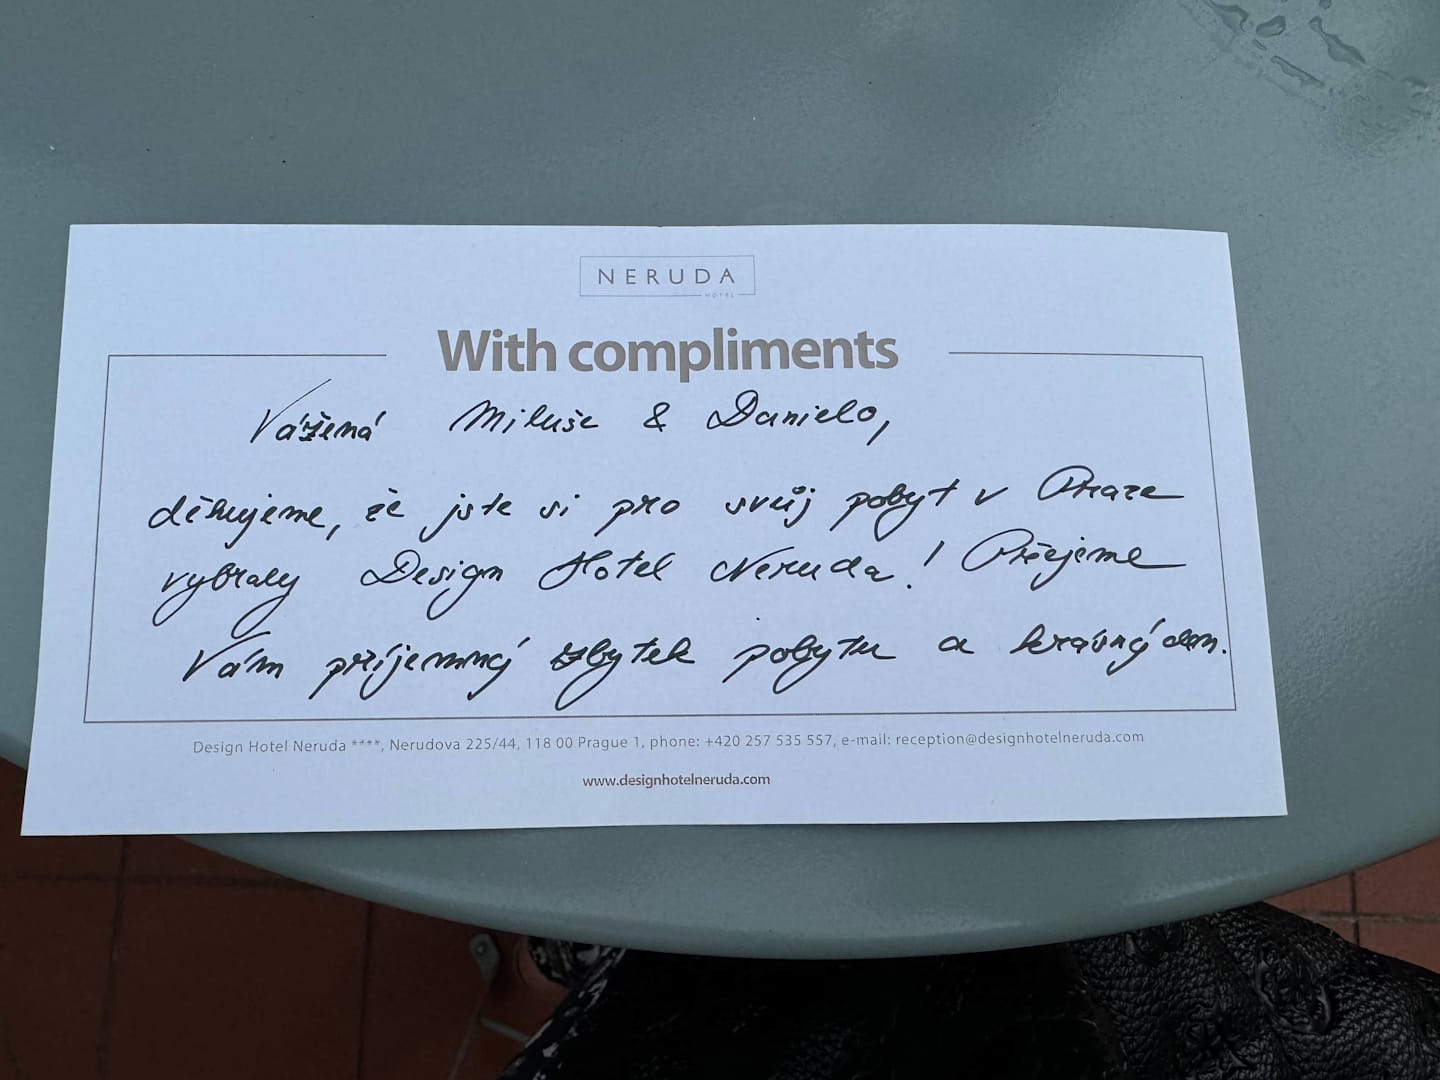 NERUDA
HOTEL
With compliments
Vážená Miluše & Danielo,
děkujeme, že jste si pro svůj pobyt v Praze
vybraly Design Hotel Neruda! Přejeme
Vám příjemný zbytek pobytu a krásný den.
Design Hotel Neruda ****, Nerudova 225/44, 118 00 Prague 1, phone: +420 257 535 557, e-mail: reception@designhotelneruda.com
www.designhotelneruda.com